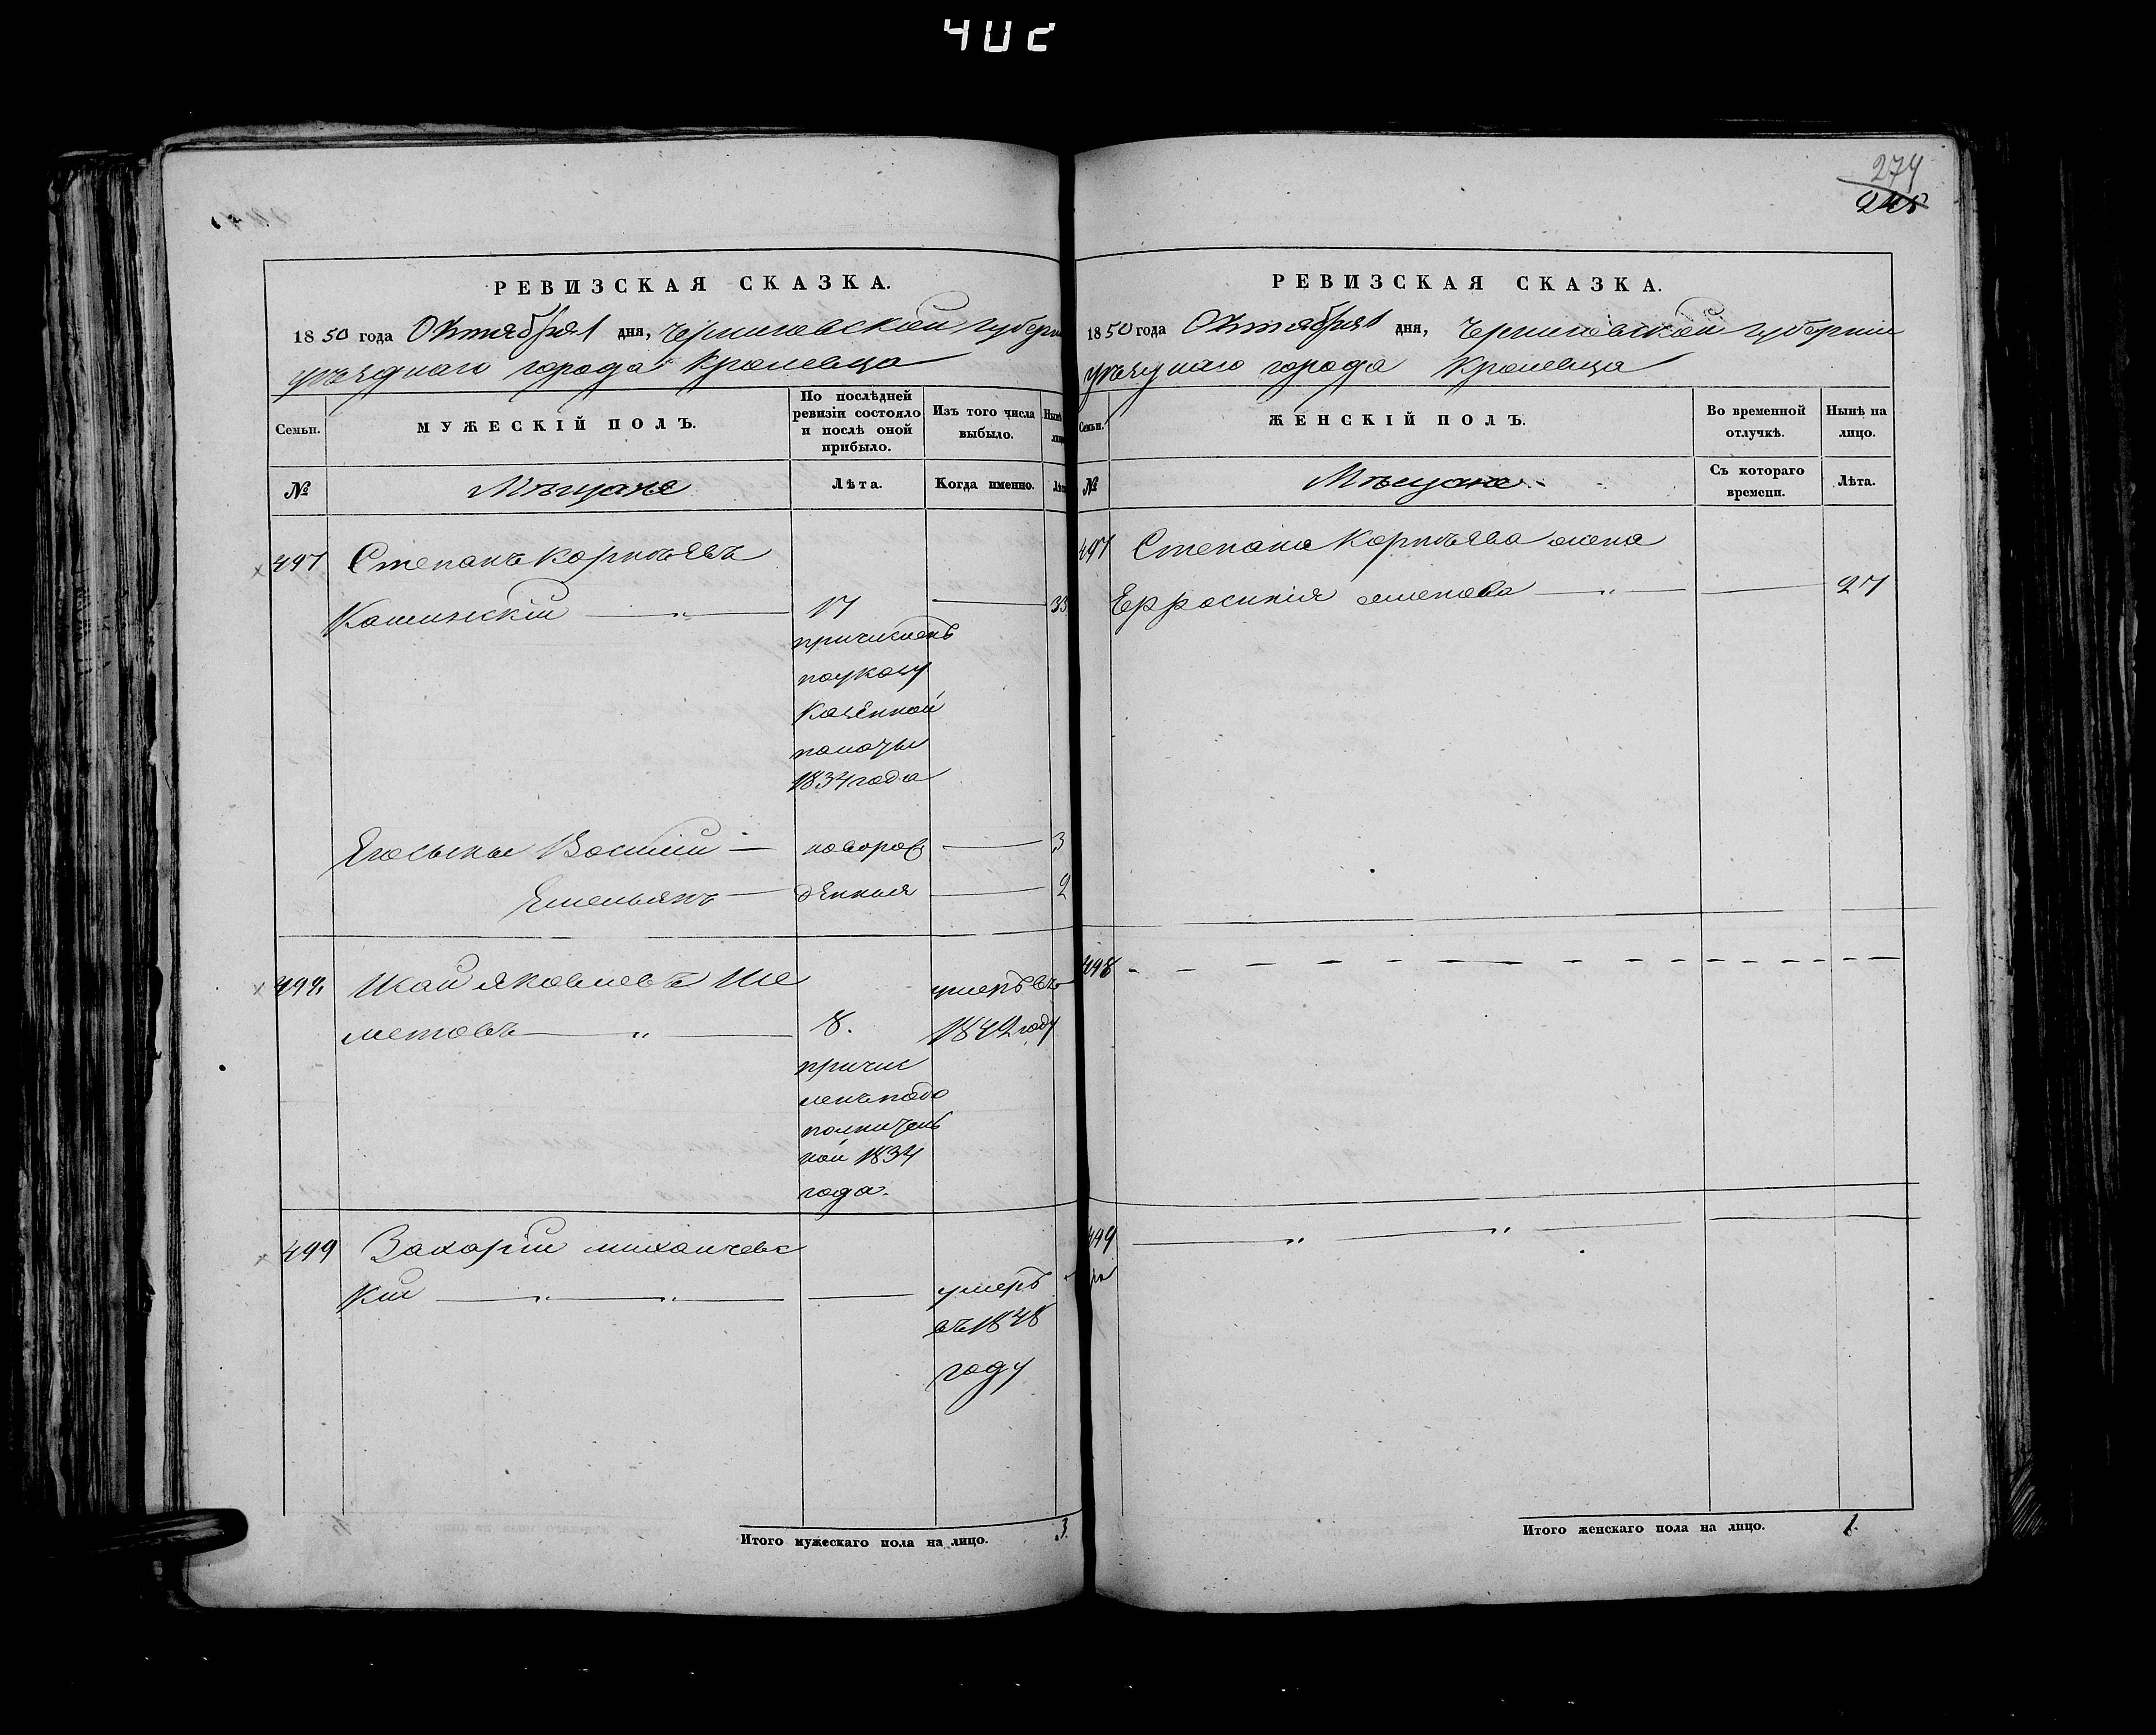 402
274
245
РЕВИЗСКАЯ СКАЗКА.
1850 года Октября 1 дня, Черниговской губерн
уѣзднаго города Кролевца
Семьи.
МУЖЕСКІЙ ПОЛЪ.
По послѣдней ревизіи состояло и послѣ оной прибыло.
Изъ того числа выбыло.
Нынѣ лицо
№
Мѣщане
Лѣта.
Когда именно.
Лѣта
497 Степанъ Корнѣевъ
17 33
причисленъ
поуказу
Казенной
палаты
1834 года
Его сыны Василій новорож 3
Емельянъ денныя 2
498 Яковлевъ Ше
умеръ въ
метовъ 8. 1842 году
причис
ленъ подо
полнитель
ной 1834
года.
499 Захарій Михалчевс
кій умеръ
въ 1848
году
Итого мужескаго пола на лицо. 3
РЕВИЗСКАЯ СКАЗКА.
1850 года Октября 1 дня, Черниговской губерніи
уѣзднаго города Кролевца
Семьи.
ЖЕНСКІЙ ПОЛЪ.
Во временной отлучкѣ.
Нынѣ на лицо.
№
Мѣщане
Съ котораго времени.
Лѣта.
497 Степана Корнѣева жена
Ефросинія 27
498
499
Итого женскаго пола на лицо. 1